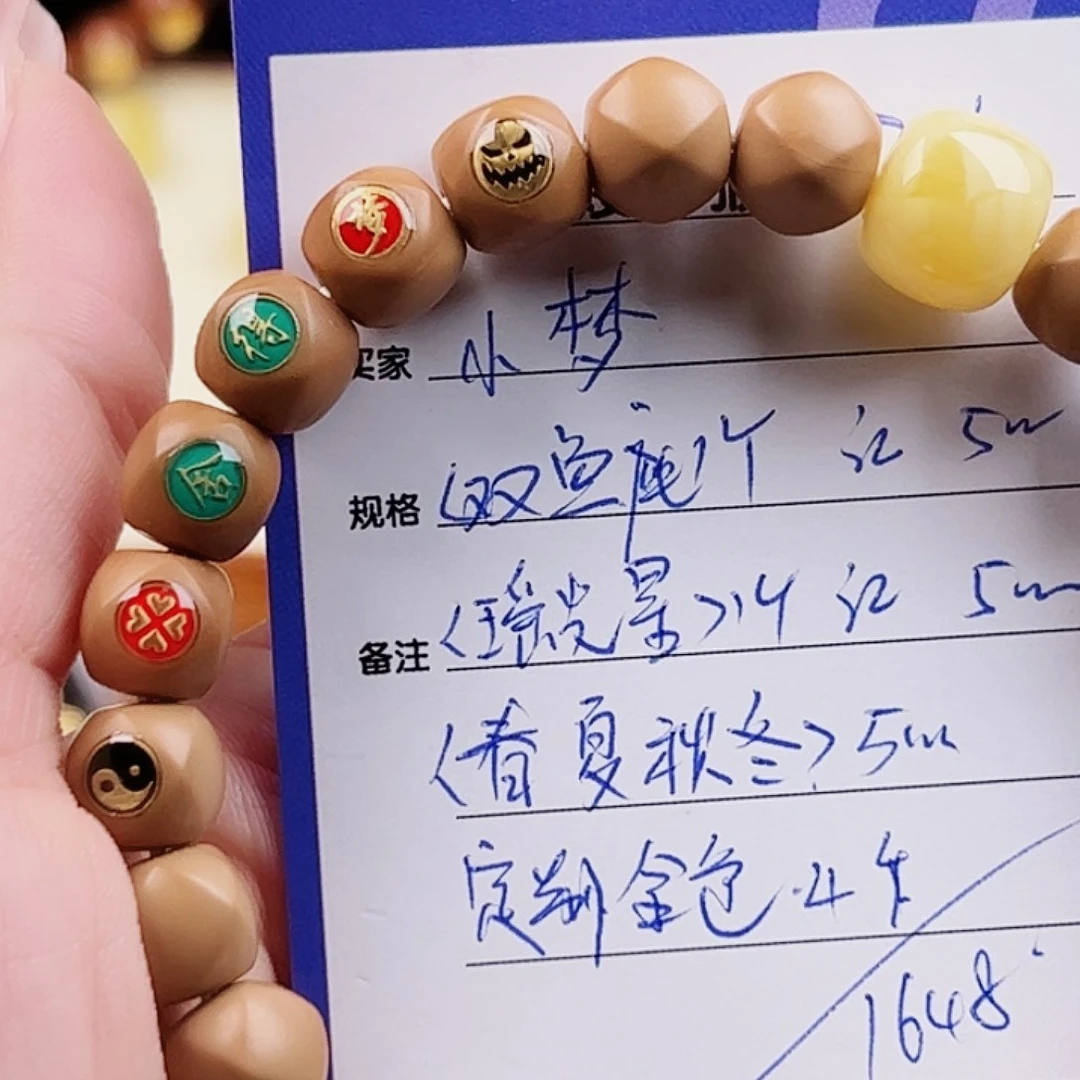 买家 小梦
规格 双鱼座1个 红 5m
备注 <瑶光星>1个 红 5m
<春夏秋冬> 5m
定制金色 4个
1648